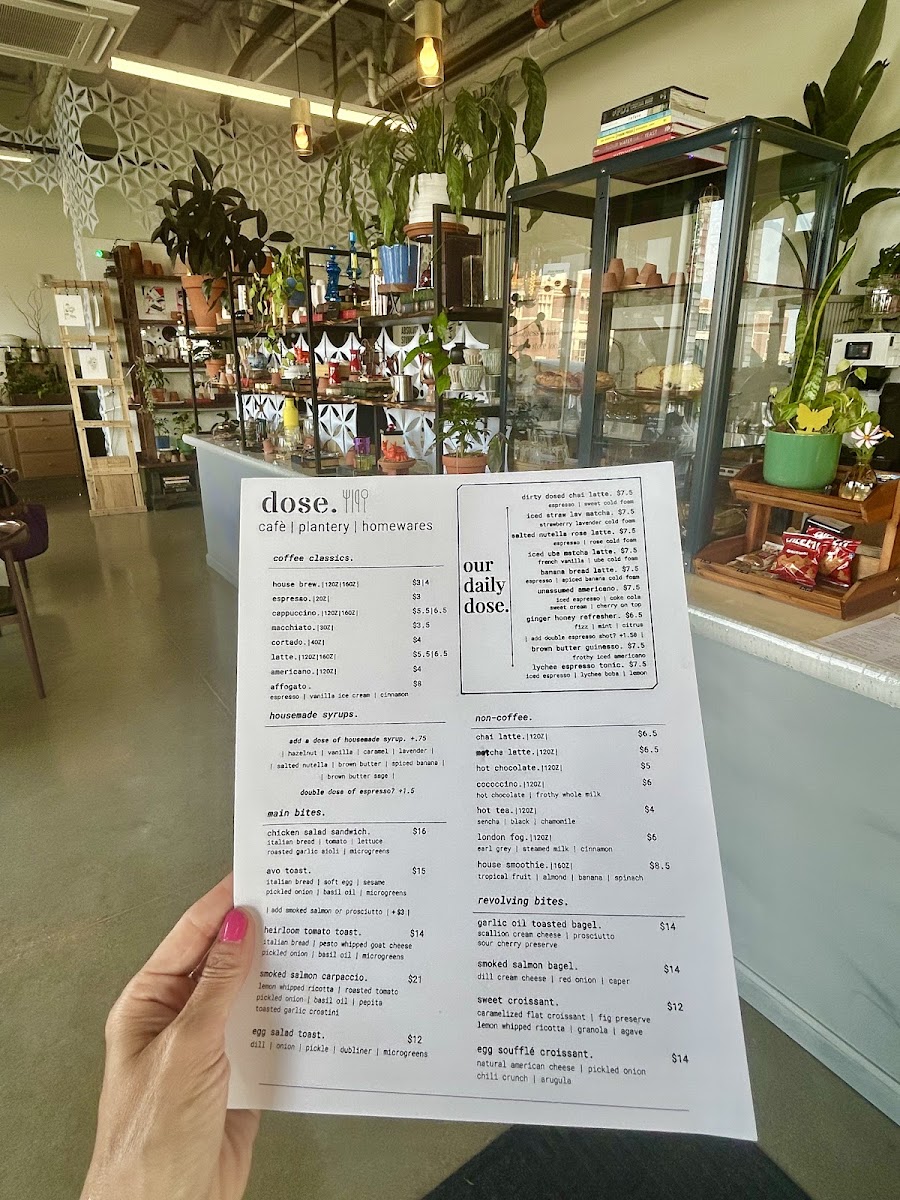 dose.
cafè | plantery | homewares
coffee classics.
house brew.|12OZ|16OZ| $3|4
espresso.|2OZ| $3
cappuccino.|12OZ|16OZ| $5.5|6.5
macchiato.|3OZ| $3.5
cortado.|4OZ| $4
latte.|12OZ|16OZ| $5.5|6.5
americano.|12OZ| $4
affogato. $8
espresso | vanilla ice cream | cinnamon
housemade syrups.
add a dose of housemade syrup. +.75
| hazelnut | vanilla | caramel | lavender |
| salted nutella | brown butter | spiced banana |
| brown butter sage |
double dose of espresso? +1.5
main bites.
chicken salad sandwich. $16
italian bread | tomato | lettuce
roasted garlic aioli | microgreens
avo toast. $15
italian bread | soft egg | sesame
pickled onion | basil oil | microgreens
| add smoked salmon or prosciutto | +$3 |
heirloom tomato toast. $14
italian bread | pesto whipped goat cheese
pickled onion | basil oil | microgreens
smoked salmon carpaccio. $21
lemon whipped ricotta | roasted tomato
pickled onion | basil oil | pepita
toasted garlic crostini
egg salad toast. $12
dill | onion | pickle | dubliner | microgreens
our
daily
dose.
dirty dosed chai latte. $7.5
espresso | sweet cold foam
iced straw lav matcha. $7.5
strawberry lavender cold foam
salted nutella rose latte. $7.5
espresso | rose cold foam
iced ube matcha latte. $7.5
french vanilla | ube cold foam
banana bread latte. $7.5
espresso | spiced banana cold foam
unassumed americano. $7.5
iced espresso | coke cola
sweet cream | cherry on top
ginger honey refresher. $6.5
fizz | mint | citrus
| add double espresso shot? +1.50 |
brown butter guinesso. $7.5
frothy iced americano
lychee espresso tonic. $7.5
iced espresso | lychee boba | lemon
non-coffee.
chai latte.|12OZ| $6.5
matcha latte.|12OZ| $6.5
hot chocolate.|12OZ| $5
cococcino.|12OZ| $6
hot chocolate | frothy whole milk
hot tea.|12OZ| $4
sencha | black | chamomile
london fog.|12OZ| $6
earl grey | steamed milk | cinnamon
house smoothie.|16OZ| $8.5
tropical fruit | almond | banana | spinach
revolving bites.
garlic oil toasted bagel. $14
scallion cream cheese | prosciutto
sour cherry preserve
smoked salmon bagel. $14
dill cream cheese | red onion | caper
sweet croissant. $12
caramelized flat croissant | fig preserve
lemon whipped ricotta | granola | agave
egg soufflé croissant. $14
natural american cheese | pickled onion
chili crunch | arugula